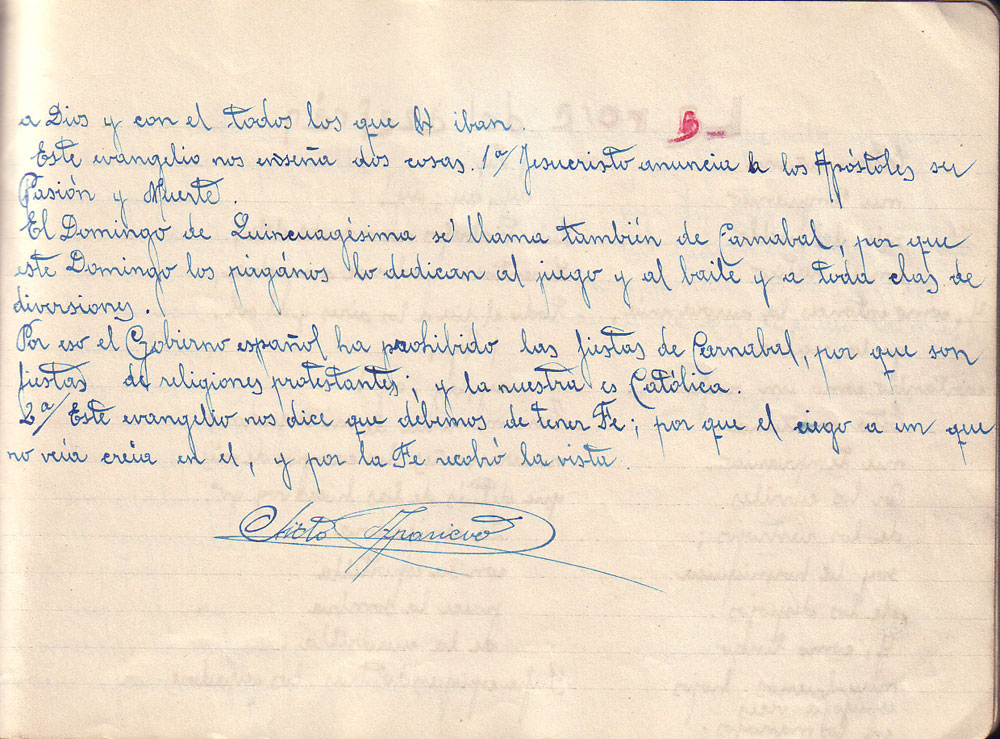 a Dios y con el todos los que iban.
B_
Este evangelio nos enseña dos cosas. 1ª/ Jesucristo anuncia a los Apóstoles su
Pasión y Muerte.
El Domingo de Quincuagésima se llama también de Carnabal, por que
este Domingo los págános lo dedican al juego y al baile y a toda clas de
diversiones.
Por eso el Gobirno español ha prohibido las fiestas de Carnabal, por que son
fiestas de religiones protestantes; y la nuestra es Católica.
2ª/ Este evangelio nos dice que débimos de tener Fe; por que el ciego a un que
no veia creia en el, y por la Fe recobró la vista.
Aparicio